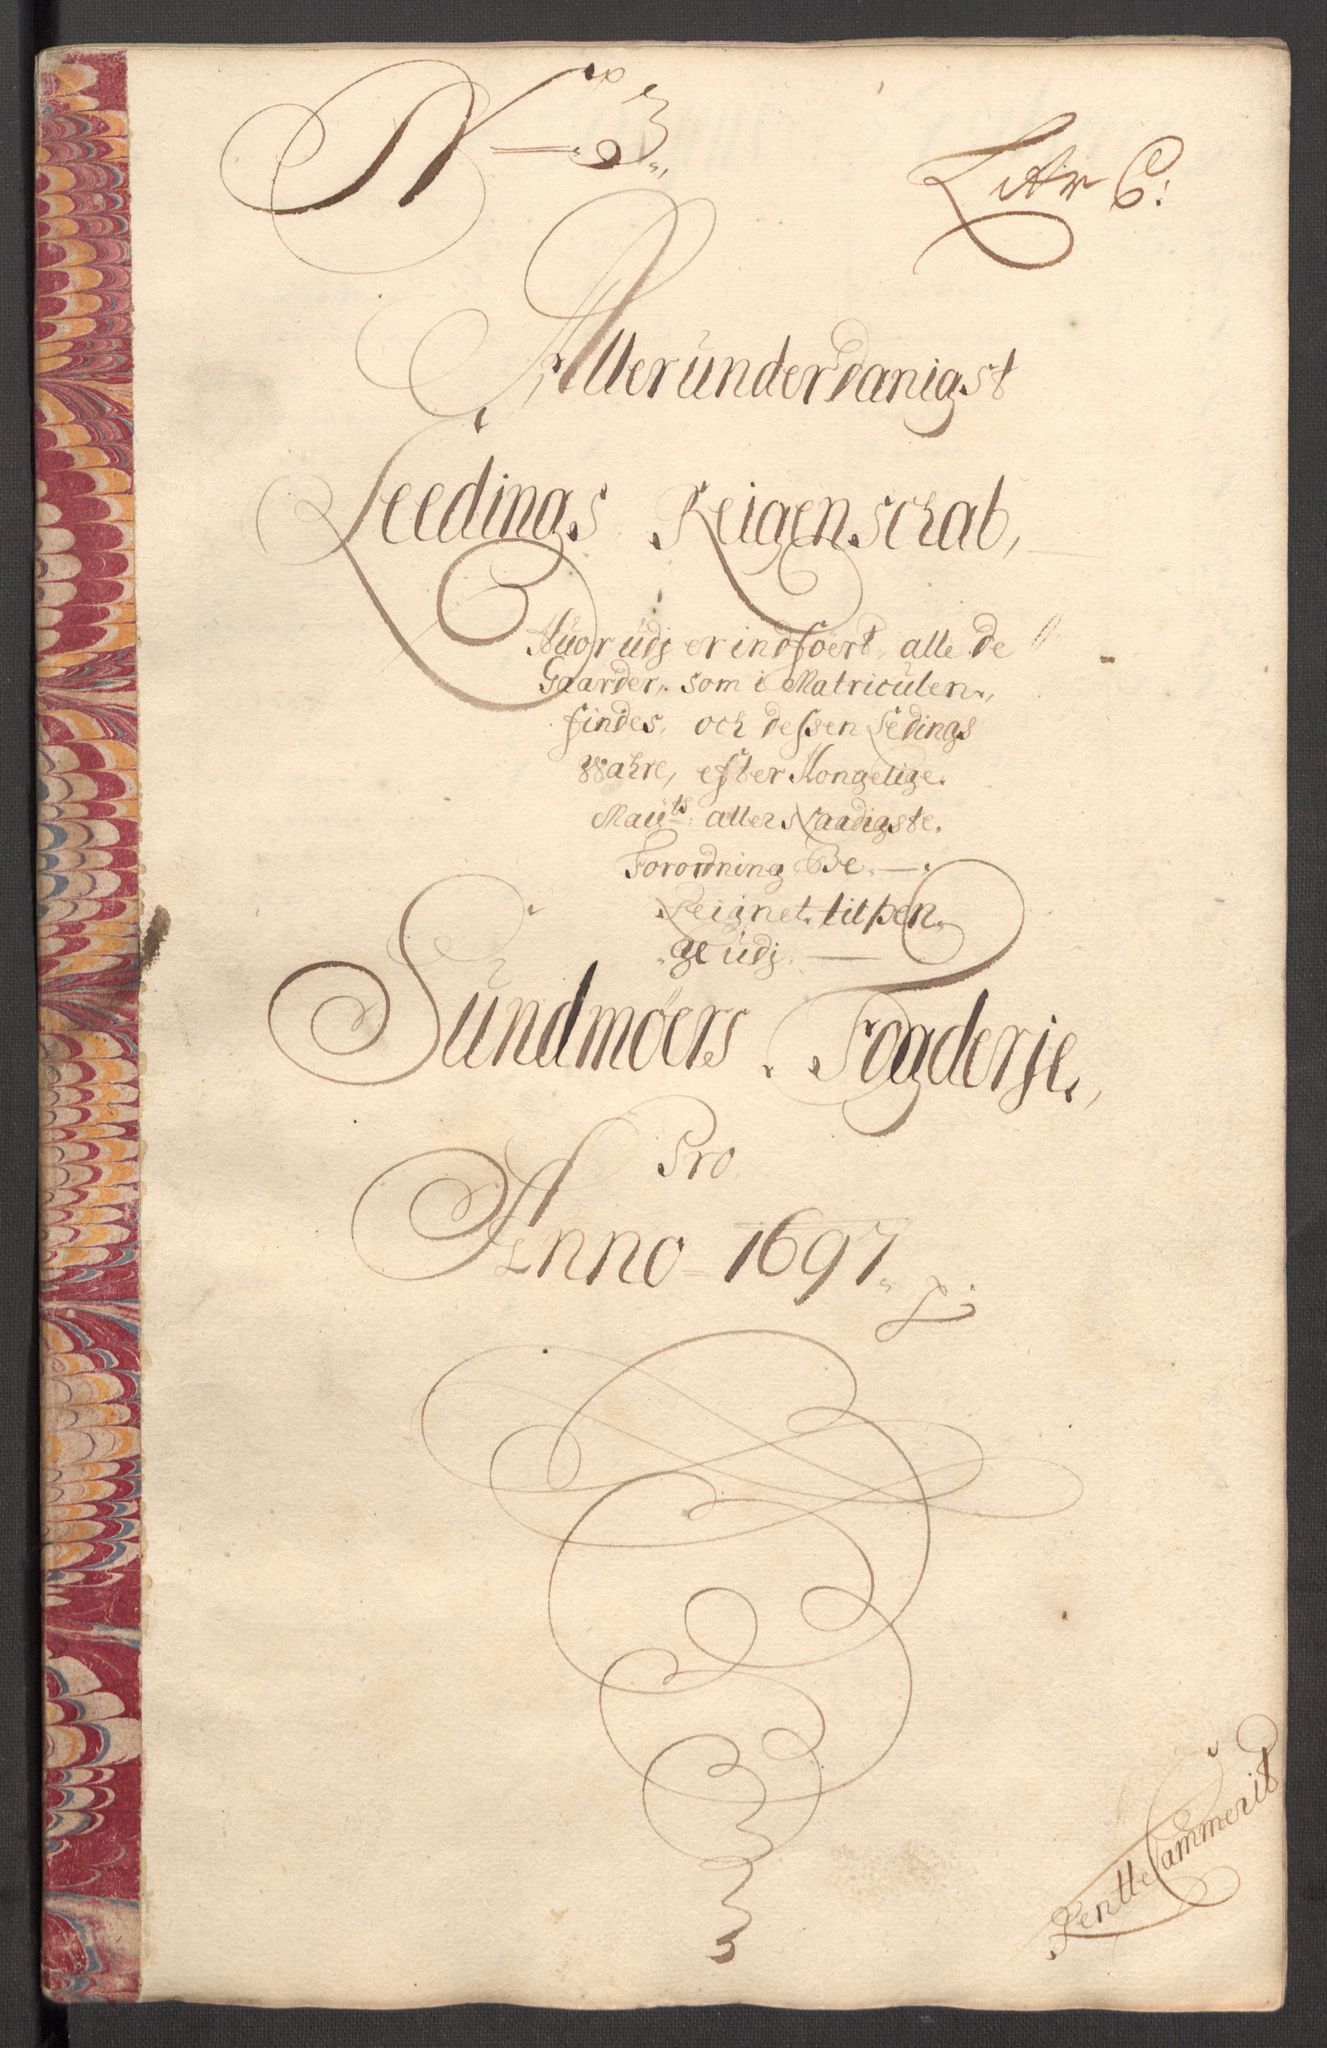 No 3.
Litr C:
Allerunderdanigst
Leedings Reigenschab,
Huorudj er indföert, alle de
Gaarder, som i Matriculen,
findes, och dessen Ledings
Wahre, efter Kongelige.
Mayts: aller Naadigste.
Forordning Be -
Reignet til Pen
ge udj.
Sundmöers Fogderje,
Pro
Anno 1697.
RentteCammerit